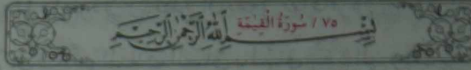 ٧٥ / سُورَةُ الْقِيٰمَةِ
بِسْمِ اللّٰهِ الرَّحْمٰنِ الرَّحِيْمِ